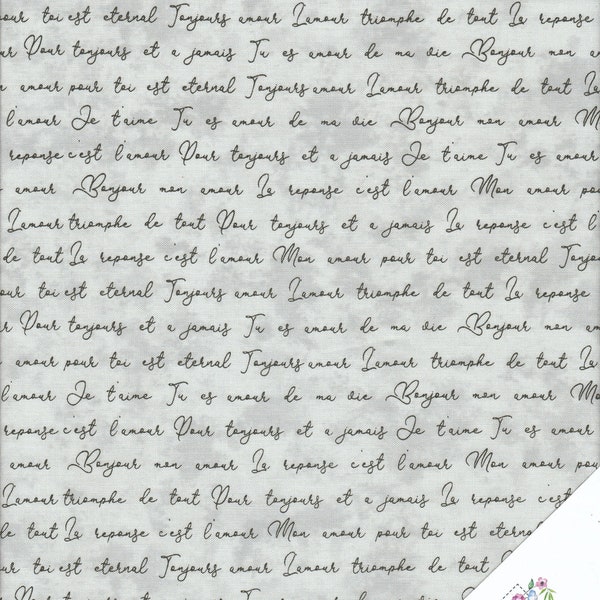 our toi est eternal Tonjours amour Lamour triomphe de tout La reponse
ur Pour tonjours et a jamais Tu es amour de ma vie Bonjour mon am
n amour pour toi est eternal Tonjours amour Lamour triomphe de tout La
l'amour Je t'aime Tu es amour de ma vie Bonjour mon amour M
reponse c'est l'amour Pour tonjours et a jamais Je t'aime Tu es amour
amour Bonjour mon amour La reponse c'est l'amour Mon amour pou
Lamour triomphe de tout Pour tonjours et a jamais La reponse c'est l'
de tout La reponse c'est l'amour Mon amour pour toi est eternal Tonjou
our toi est eternal Tonjours amour Lamour triomphe de tout La reponse
r Pour tonjours et a jamais Tu es amour de ma vie Bonjour mon am
amour pour toi est eternal Tonjours amour Lamour triomphe de tout La
l'amour Je t'aime Tu es amour de ma vie Bonjour mon amour Mo
reponse c'est l'amour Pour tonjours et a jamais Je t'aime Tu es amour
amour Bonjour mon amour La reponse c'est l'amour Mon amour pou
Lamour triomphe de tout Pour tonjours et a jamais La reponse c'est
de tout La reponse c'est l'amour Mon amour pour toi est eternal
our toi est eternal Tonjours amour Lamour triomphe de tout
Pour tonjours et a jamais Tu es amour de ma vie